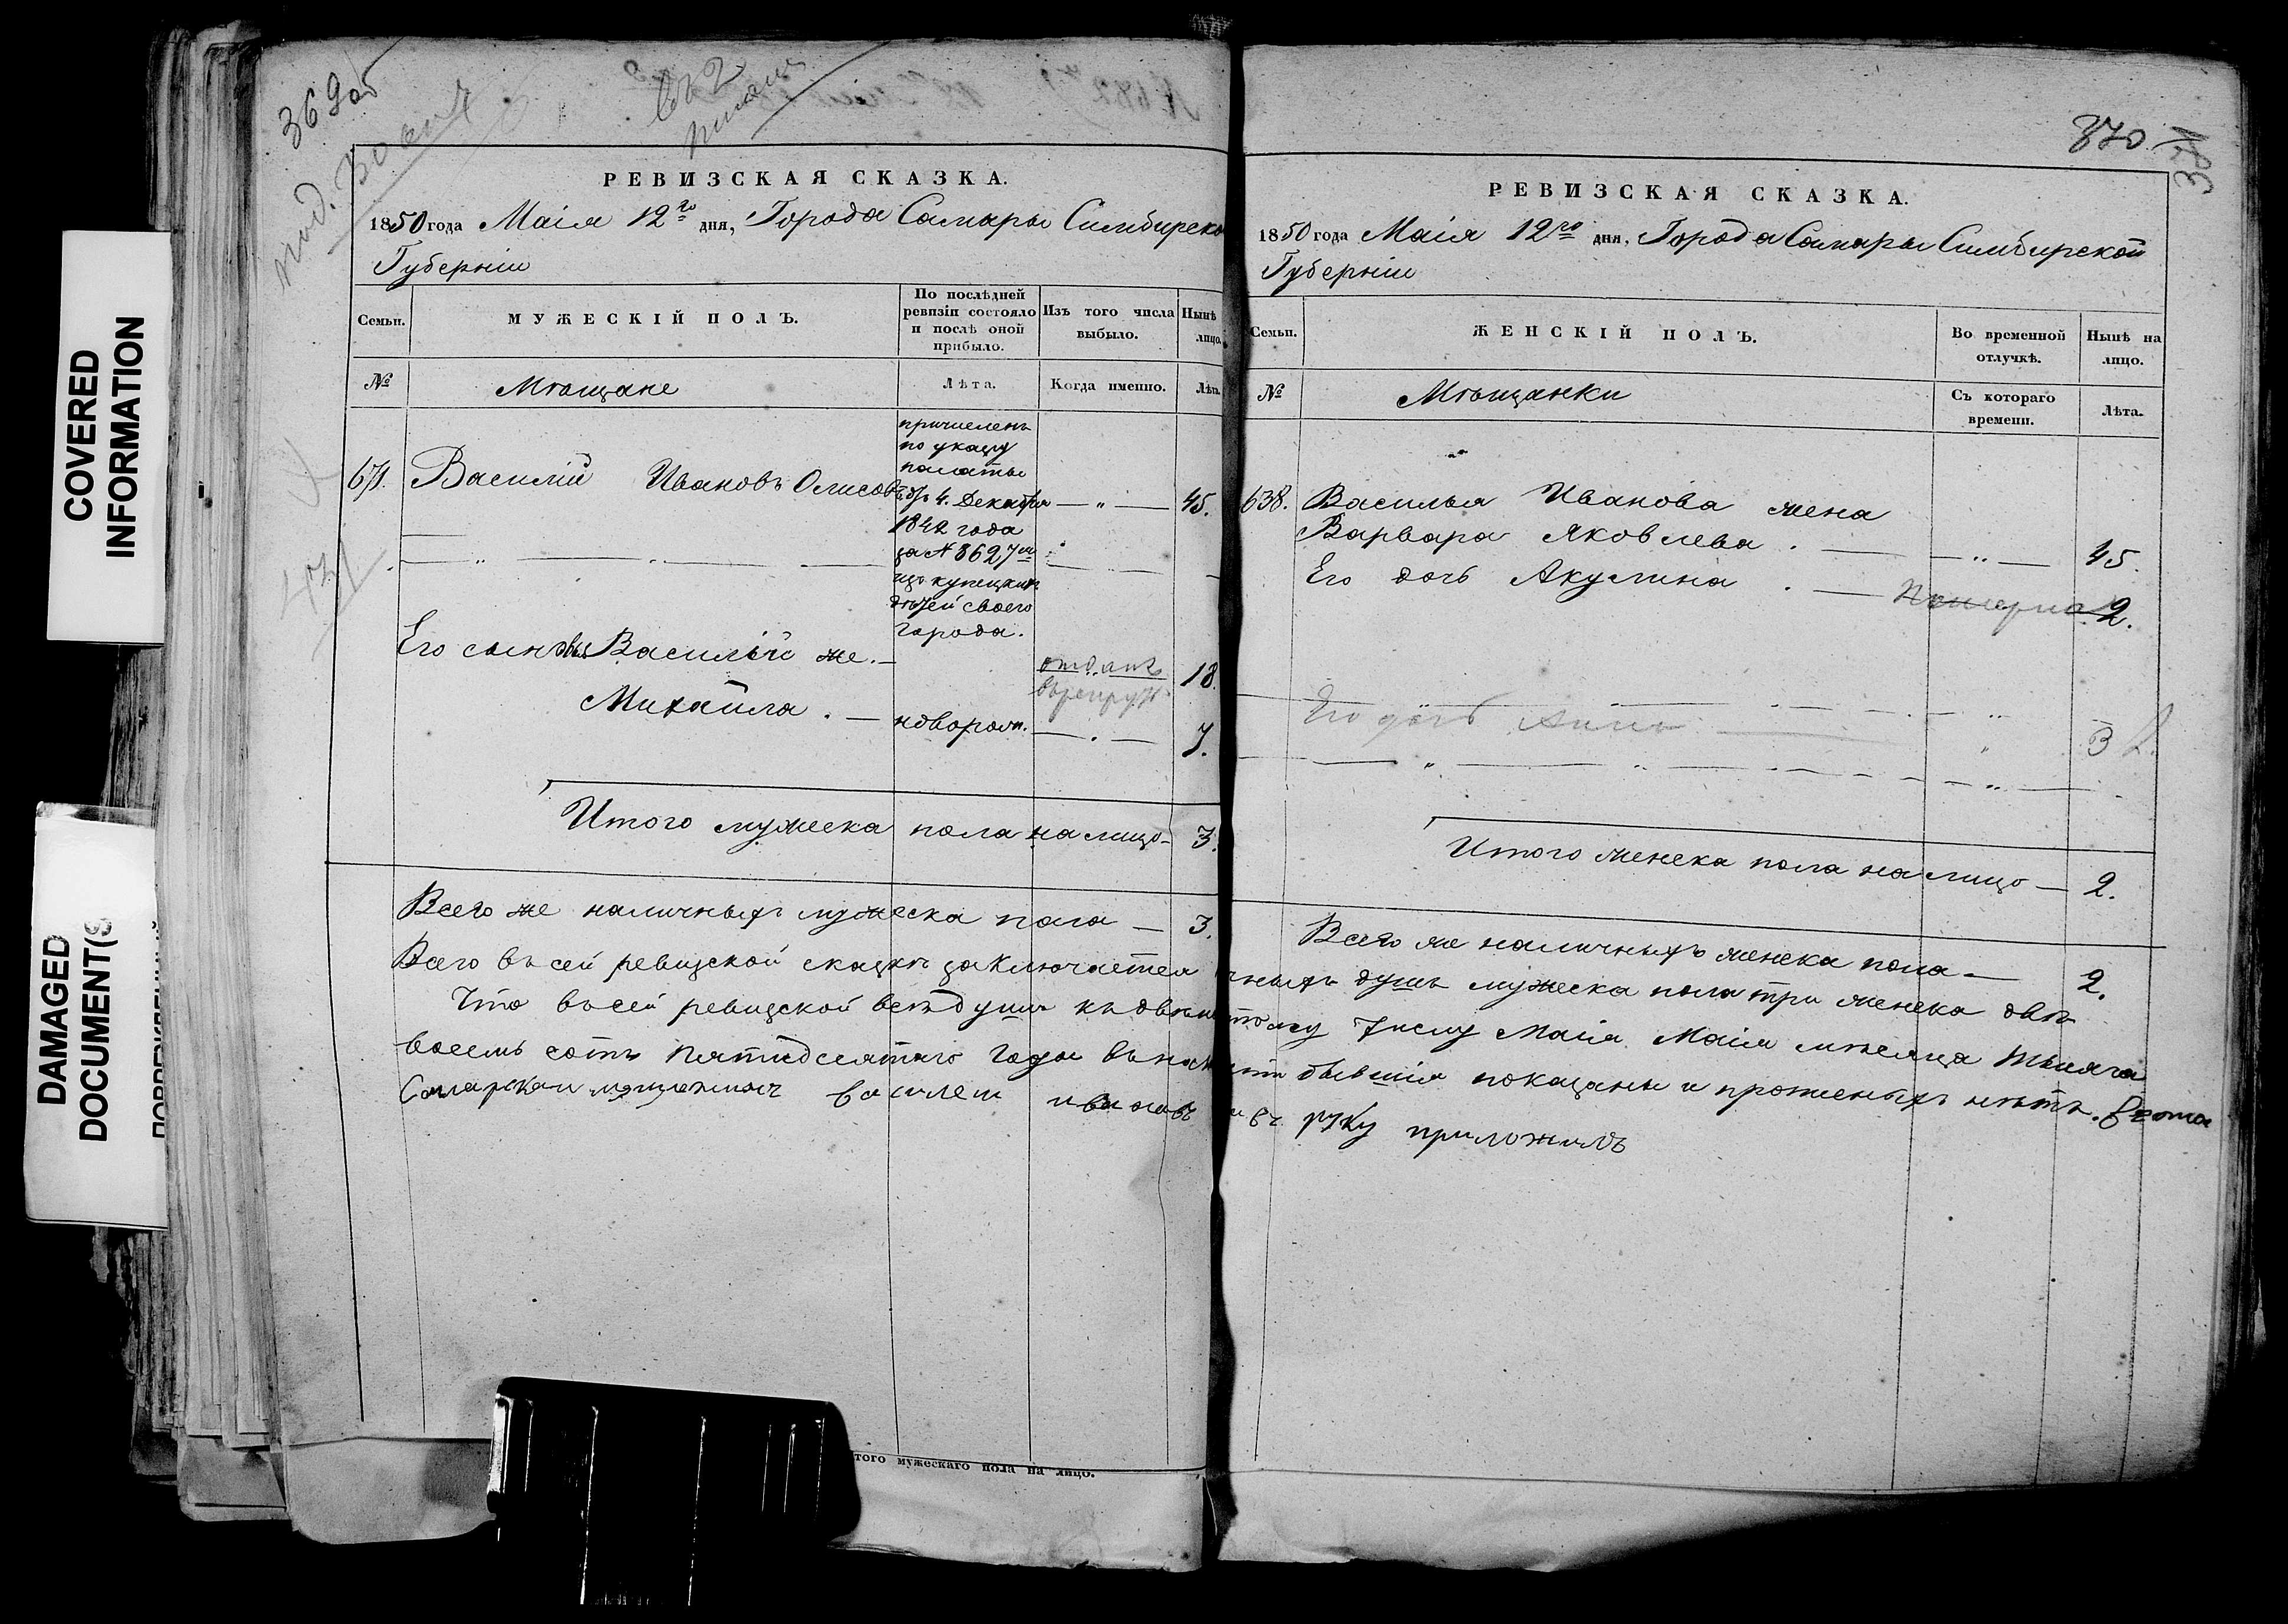 COVERED
INFORMATION
DAMAGED
DOCUMENT(S
369об
РЕВИЗСКАЯ СКАЗКА.
1850 года Маія 12го дня, Города Самары Симбирско
Губерніи
Семьи.
МУЖЕСКІЙ ПОЛЪ.
По послѣдней
ревизіи состояло
и послѣ оной
прибыло.
Изъ того числа
выбыло.
Нынѣ
лицо.
№
Мѣщане
Лѣта.
Когда именно.
Лѣта
причисленъ
по указу
палаты
671. Василій Ивановъ 4. Декабря — „ — 45.
1842 года
за № 8627м
изъ купецкихъ
дѣтей своего
города.
Его сыновья Василій же. — отданъ 18.
Михайла. — новорож. — . — 7.
Итого мужеска пола на лицо — 3.
Всего же наличныхъ мужеска пола — 3.
Всего въ сей ревизской сказкѣ заключается
Что въ сей ревизской всѣ души къ
восемь сотъ пятидесятаго года въ
Самарскай василеи иванавъ
того мужескаго пола на лицо.
370
РЕВИЗСКАЯ СКАЗКА.
1850 года Маія 12го дня, Города Самары Симбирской
Губерніи
Семьи.
ЖЕНСКІЙ ПОЛЪ.
Во временной
отлучкѣ.
Нынѣ на
лицо.
№
Мѣщанки
Съ котораго
времени.
Лѣта.
638. Василья Иванова жена
Варвара Яковлева. — „ — 45.
Его дочь Акулина. — 2.
Его дочь Анна 3
Итого женска пола на лицо — 2.
Всего же наличныхъ женска пола — 2.
ныхъ душъ мужеска пола три женска двѣ
тому числу Маія Маія мѣсяца тысяча
бывшія показаны и прописныхъ нѣтъ.
руку приложилъ